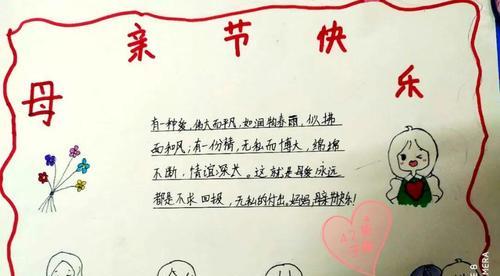 母亲节快乐
有一种爱,伟大而平凡,如润物春雨,似拂
面和风;有一份情,无私而博大,绵绵
不断,情谊深长。这就是母爱永远
都是不求回报,无私的付出,妈妈,母亲节快乐!